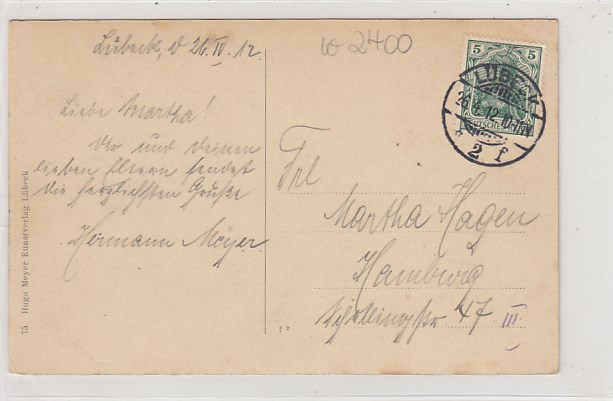 Lübeck, d 26.IV.12.
W 2400
Liebe Martha!
Dir und deinen
lieben Eltern sendet
die herzlichsten Grüße
Hermann Meyer.
75. Hugo Meyer Kunstverlag Lübeck
5 5
LÜBECK
2 f
Frl
Martha Hagen
Hamburg
47 III